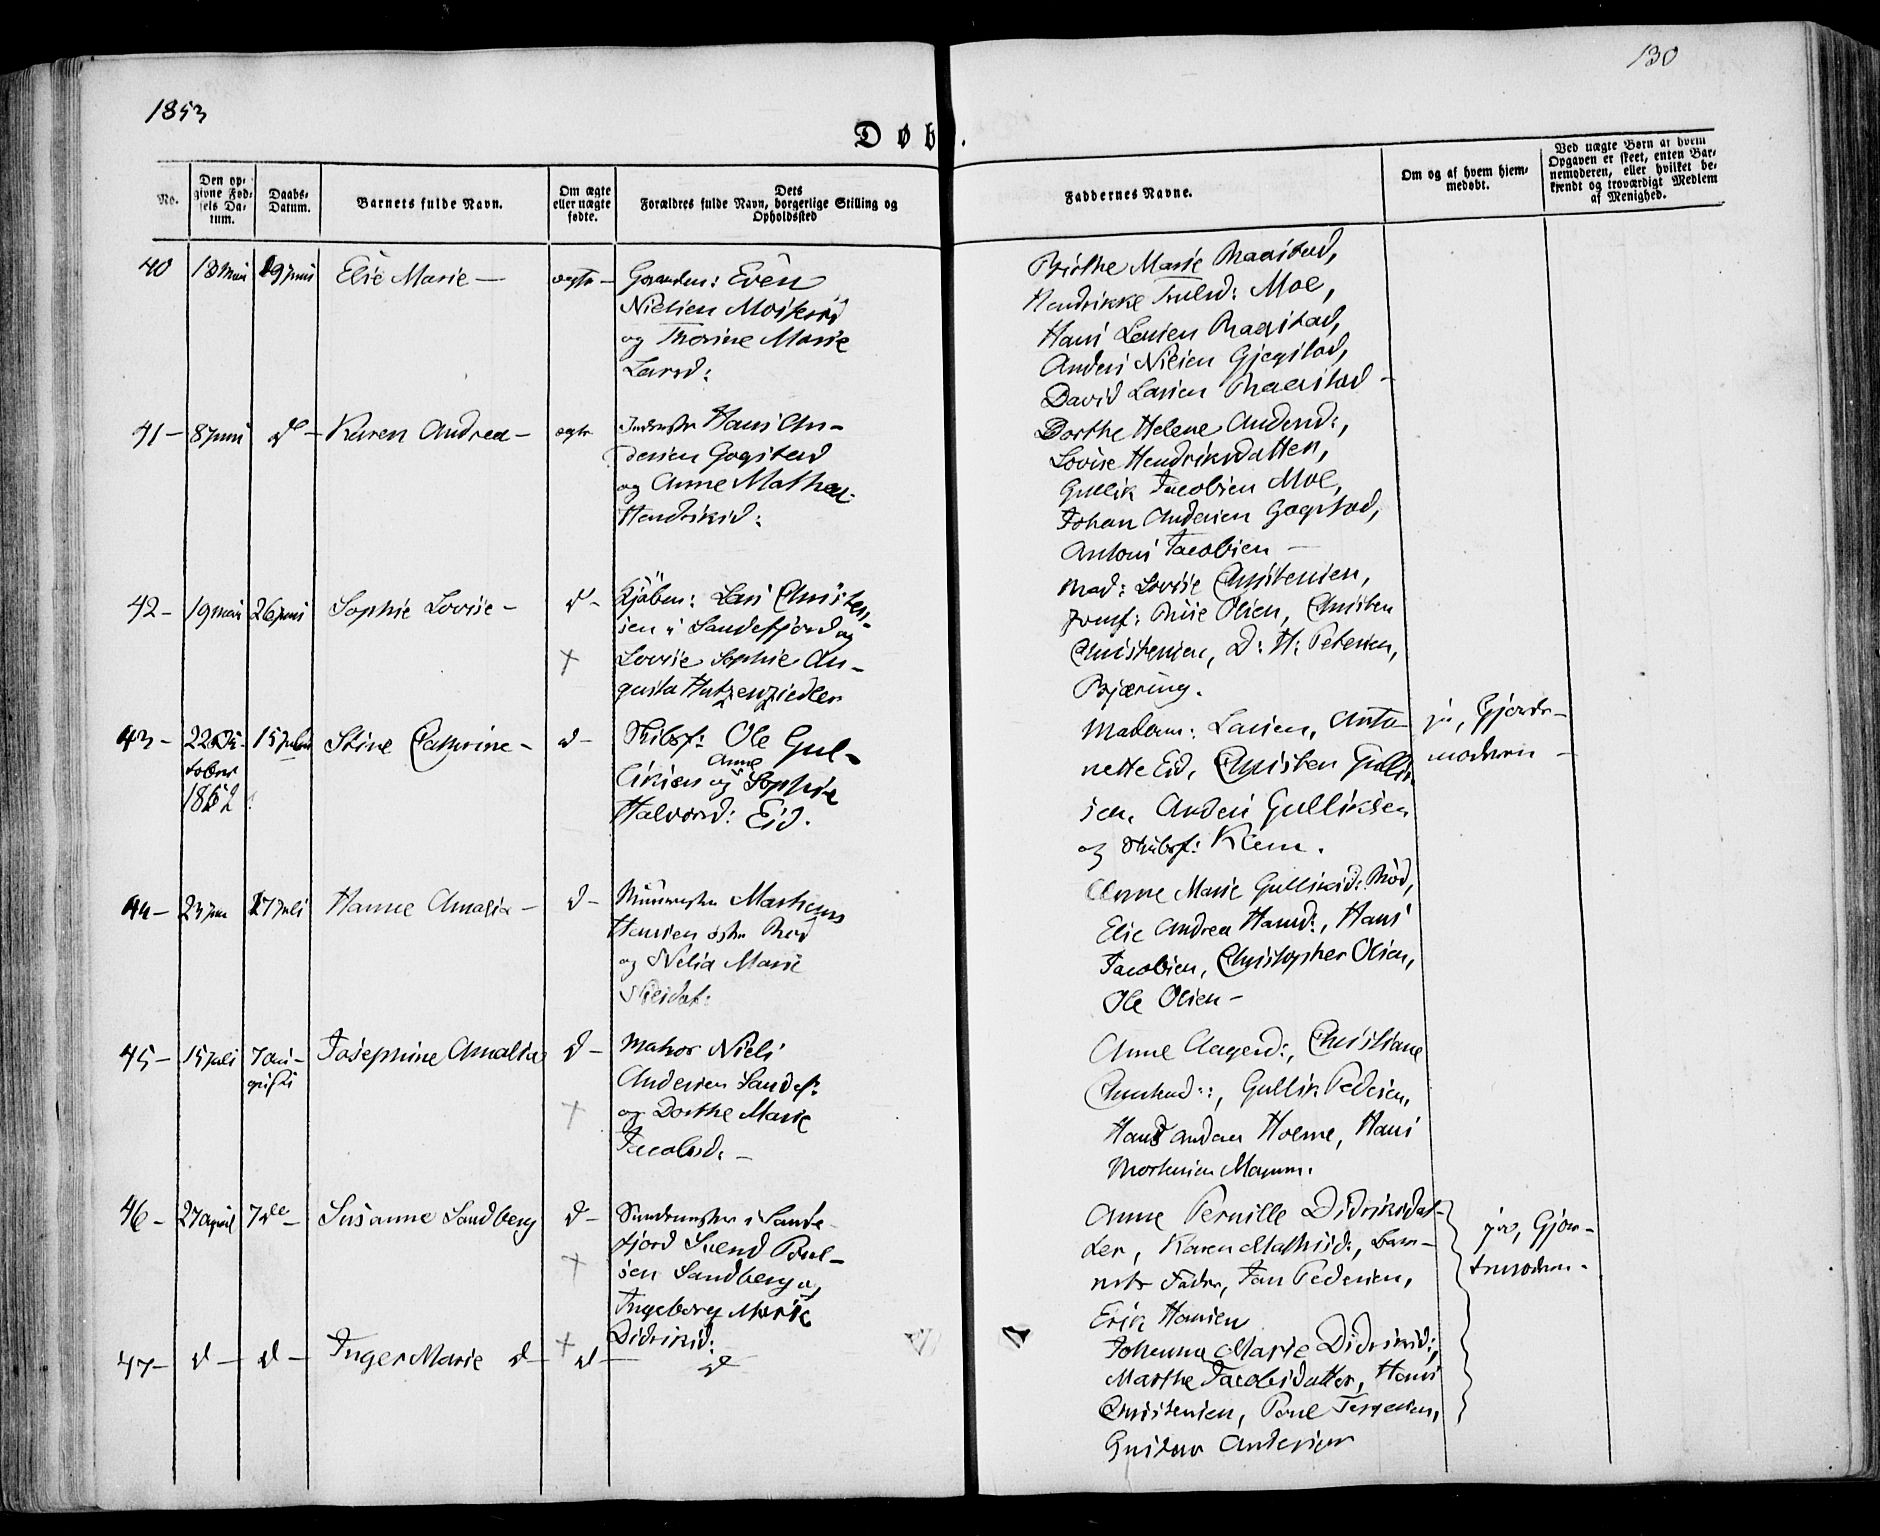 1853
130
Døb.
No.
Den op-
givne Fød-
sels Da-
tum.
Daabs-
Datum.
Barnets fulde Navn.
Om ægte
eller uægte
fødte.
Dets
Forældres fulde Navn, borgerlige Stilling og
Opholdssted
Faddernes Navne.
Om og af hvem hjem-
medøbt.
Ved uægte Børn af hvem
Opgaven er skeet, enten Bar-
nemoderen, eller hvilket be-
kjendt og troværdigt Medlem
af Menighed.
40 18 Mai 19 Juni Elise Marie — ægte — Gaardm: Even
Nielsen
og Thorine Marie
Larsd:
Birthe Marie
Hendrikke Moe,
Hans Larsen
Anders Nilsen Gjogstad,
David Larsen
41 — 8 Juni d° — Karen Andrea — ægte Hans An-
dersen Gogstad
og Anne Mathea
Hendriksd:
Dorthe Helene Andersd:,
Lovise Hendriksdatten,
Gullik Jacobsen Moe,
Johan Andersen Gogstad,
Antoni Jacobsen —
42 — 19 Mai 26 Juni Sophie Lovise — d° — Kjöbm: Lars Christen-
sen i Sandefjord og
Lovise Sophie Au-
gusta Hutzenziedler
Mad: Lovise Christensen,
Jomf: Olsen, Christen
Christensen, D: H: Petersen,
Bjæring.
43 — 22 Ok-
tober
1852 15 Juli Stine Cathrine — d — Skibsf: Ole Gul-
liksen og Anne Sophie
Halvorsd: Eid.
Madam: Larsen, Anto-
nette Eid, Christen Gullik
sen, Anders Gulliksen
og Skibsf: Riem.
ja, Gjorde-
moderen —
44 — 17 Juli Hanne Amalia — d — Mathias
Hansen østre Rød
og Marie
Anne Marie Gulliksd: Rød,
Elise Andrea Hansd:, Hans
Jacobsen, Christopher Olsen,
Ole Olsen —
45 — 15 Juli 7 Au-
gusti Josephine Amalia d — Matros Niels
Andersen Sandef:
og Dorthe Marie
Jacobsd: —
Anne Aagesd:, Christiane
Gullik Pedersen,
Hans Holme, Hans
Mortensen
46 — 27 April 7de — Susanne Sandberg d — i Sande-
fjord Svend Poul-
sen Sandberg og
Ingeborg Marie
Didriksd:
Anne Pernille Didriksdat-
ter, Karen Mathisd:, Bar-
nets Fader, Jan Pedersen,
Erik Hansen
ja, Gjor-
demodren.
47 — d — d — Inger Marie d — d — d
Johanna Marie Didriksd:,
Marthe Jacobsdatter, Hans
Christensen, Poul Torgersen,
Gustav Andersen